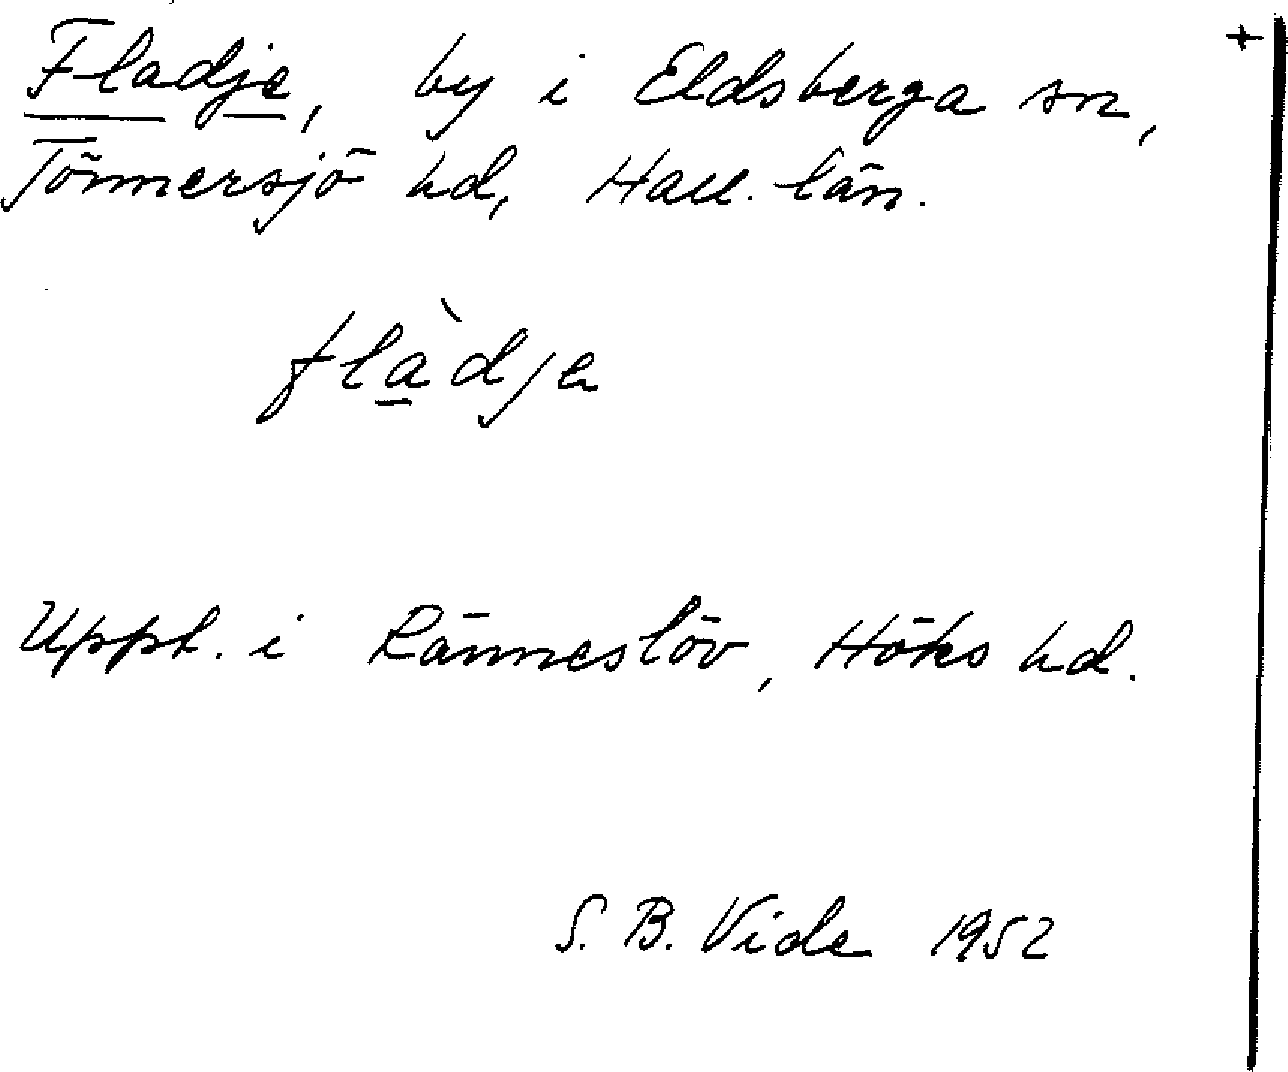 +
Fladje, by i Eldsberga sn,
Tönnersjö hd, Hall. län.
flàdje
Uppt. i Ränneslöv, Höks hd.
S. B. Vide 1952